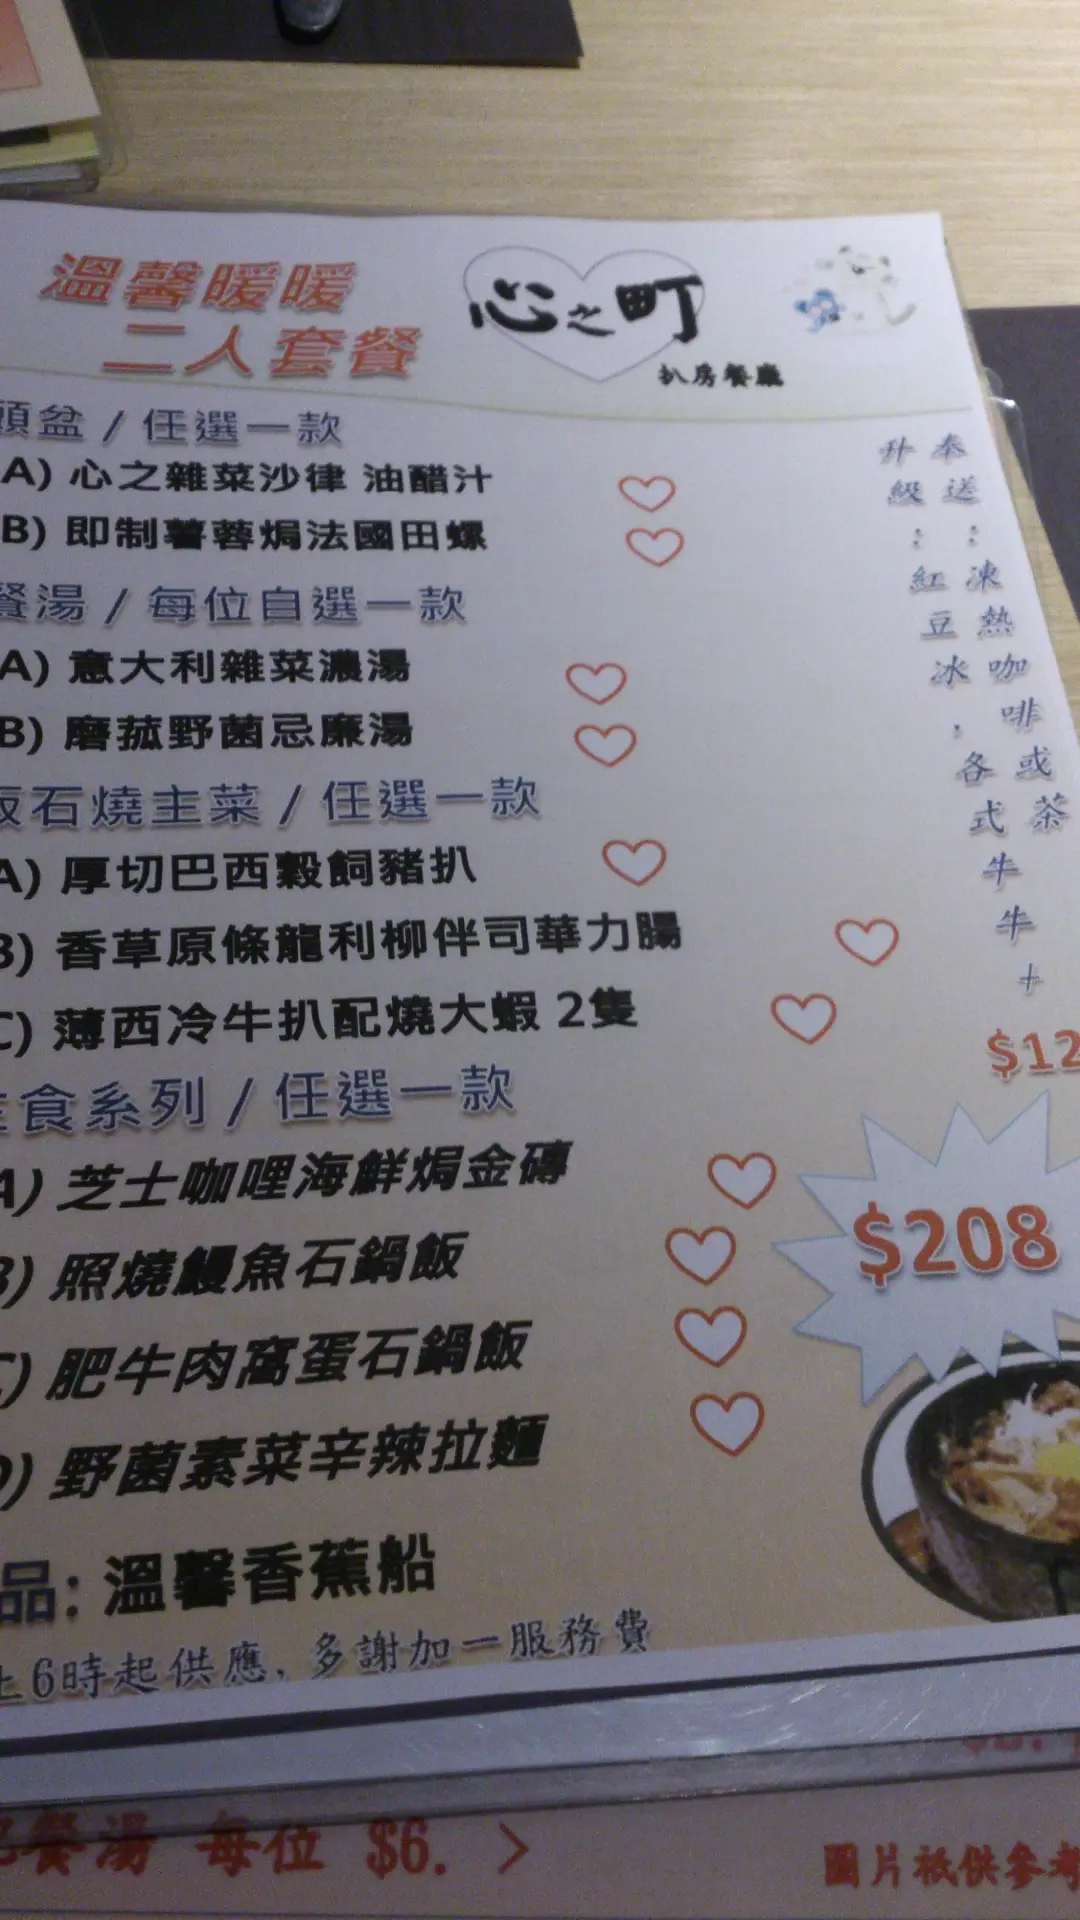 溫馨暖暖
二人套餐
心之町
扒房餐廳
頭盆 / 任選一款
A) 心之雜菜沙律 油醋汁
B) 即制薯蓉焗法國田螺
餐湯 / 每位自選一款
A) 意大利雜菜濃湯
B) 磨菰野菌忌廉湯
石燒主菜 / 任選一款
A) 厚切巴西穀飼豬扒
B) 香草原條龍利柳伴司華力腸
C) 薄西冷牛扒配燒大蝦 2隻
食系列 / 任選一款
A) 芝士咖哩海鮮焗金磚
B) 照燒鰻魚石鍋飯
C) 肥牛肉窩蛋石鍋飯
D) 野菌素菜辛辣拉麵
品: 溫馨香蕉船
上6時起供應, 多謝加一服務費
奉送:凍熱咖啡或茶
升級:紅豆冰,各式牛牛+
$12
$208
餐湯 每位 $6. >
圖片祇供參考